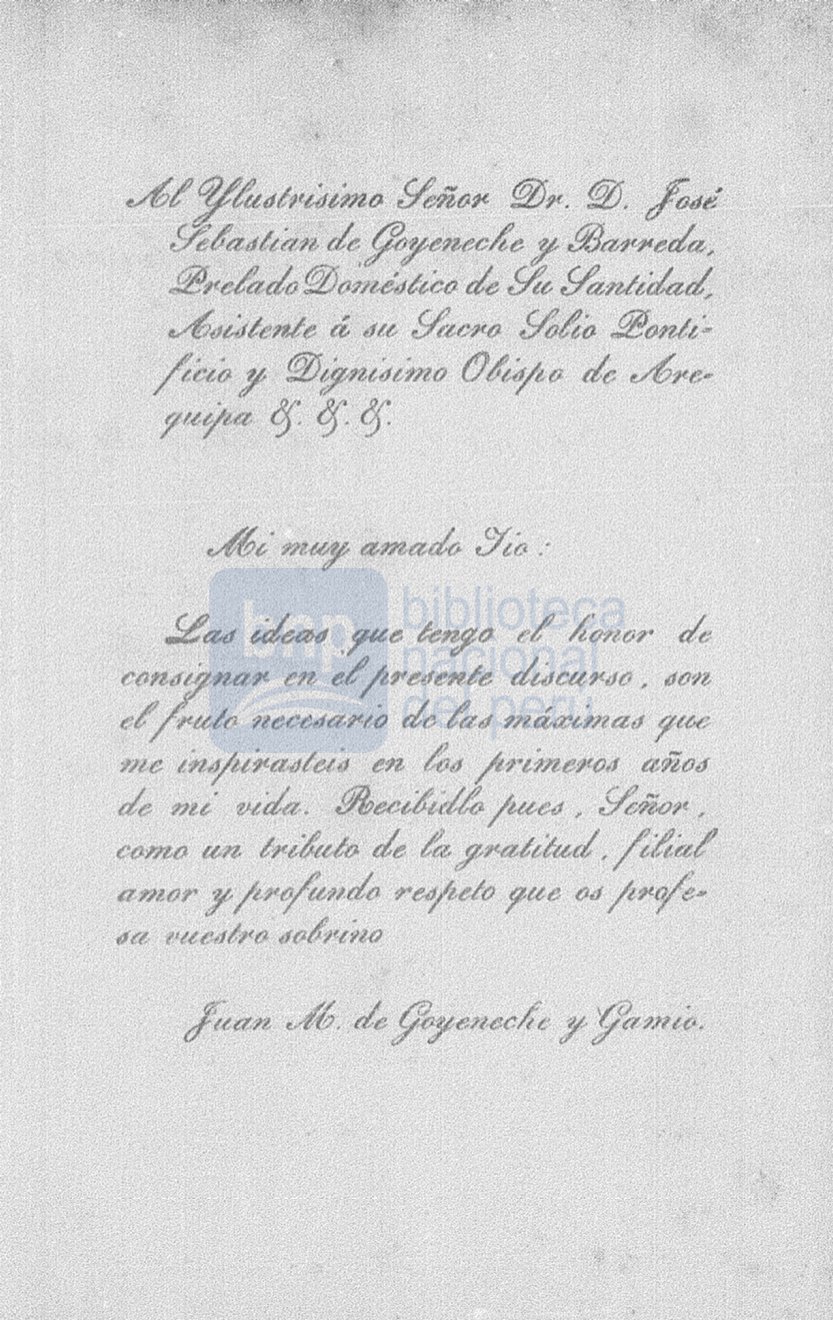 Al Ylustrisimo Señor Dr. D. José
Sebastian de Goyeneche y Barreda,
Prelado Doméstico de Su Santidad,
Asistente á su Sacro Solio Ponti-
ficio y Dignisimo Obispo de Are-
quipa &. &. &.
Mi muy amado Tio :
Las ideas que tengo el honor de
consignar en el presente discurso, son
el fruto necesario de las máximas que
me inspirasteis en los primeros años
de mi vida. Recibidlo pues, Señor,
como un tributo de la gratitud, filial
amor y profundo respeto que os profe-
sa vuestro sobrino
Juan M. de Goyeneche y Gamio.
bnp biblioteca
nacional
del perú